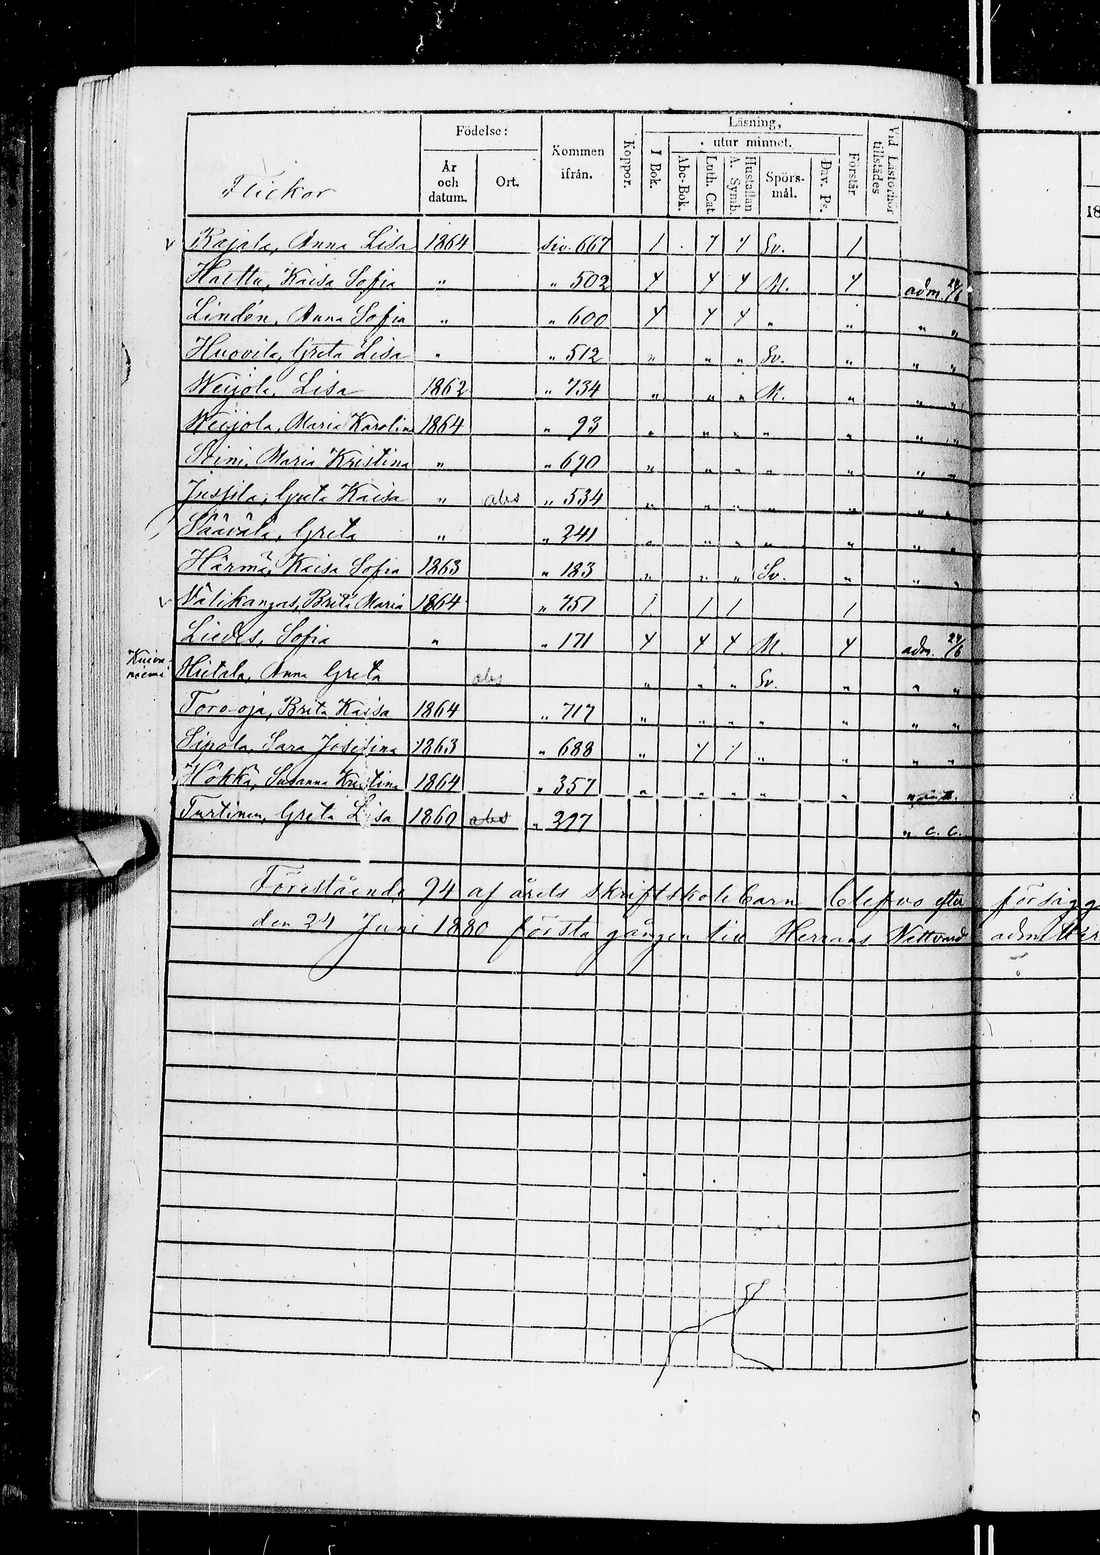 Läsning,
Födelse: Kommen ifrån. Koppor. I Bok. utur minnet. Förstår Vid Läsförhör tillstädes
Flickor År och datum. Ort. Abc-Bok. Luth. Cat. Hustaflan A. Symb. Spörsmål. Dav. Ps. 18
Rajala, Anna Lisa 1864 siv. 667 1 7 7 Sv. 1
Haettu, Kaisa Sofia " " 502 4 4 4 M. 4 adm. 24/6
Lindén, Anna Sofia " " 600 4 4 4 " " " "
Huovila, Greta Lisa " " 512 " " " Sv. " " "
Weijola, Lisa 1862 " 734 " " " M. " " "
Weijola, Maria Karolina 1864 " 93 " " " " " " "
Stini, Maria Kristina " " 690 " " " " " " "
Jussila, Greta Kaisa " abs " 534 " " " " " " "
Säävälä, Greta " " 241 " " " " " " "
Härmä, Kaisa Sofia 1863 " 183 " " " Sv. " " "
Välikangas, Brita Maria 1864 " 751 1 1 1 1
Liedes, Sofia " " 171 4 4 4 M. 4 adm. 24/6
Hietala, Anna Greta abs " " " Sv. " " "
Toro-oja, Brita Kaisa 1864 " 717 " " " " " " "
Sipola, Sara Josefina 1863 " 688 " 7 7 " " " "
Hökkä, Susanna Kristina 1864 " 357 " " " " "
Turtinen, Greta Lisa 1860 abs " 397 " c. c.
Förestående 94 af årets skriftskolebarn blefvo efter försigg
den 24 Juni 1880 första gången till Herrans Nattvard adm